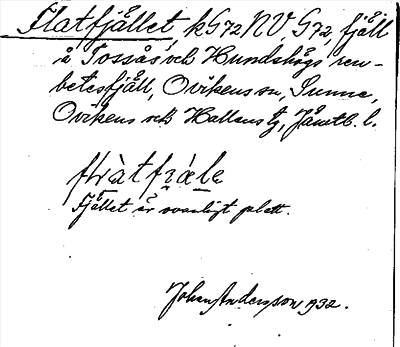 Flatfjället, kG72NV, G72, fjäll
å Tossås och Hundshögs ren-
betesfjäll, Ovikens sn, Sunne,
Ovikens och Hallens tg, Jämtl. l.
flràtfɹä́le
Fjället är ovanligt platt.
Johan Andersson 1932.